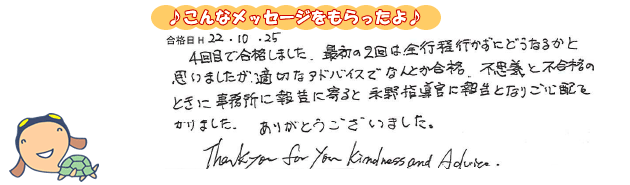 ♪こんなメッセージをもらったよ♪
合格日H 22.10.25
4回目で合格しました。最初の2回は全行程行かずにどうなるかと
思いましたが適切なアドバイスでなんとか合格。不思議と不合格の
ときに事務所に報告に寄ると永野指導官に報告となりご心配を
かけました。ありがとうございました。
Thank you for your kindness and Advice.